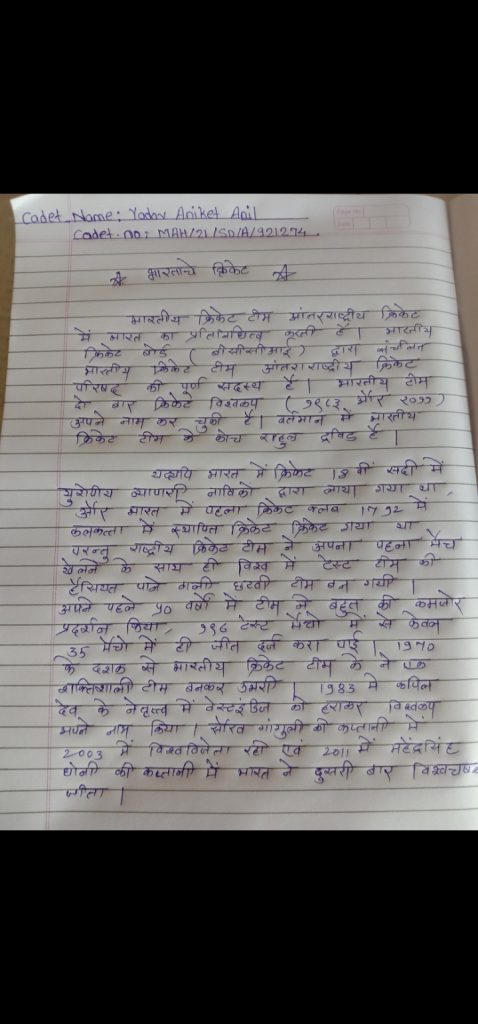 Cadet Name: Yadav Aniket Anil
Cadet. no: MAH/21/SD/A/921274.
भारताचे क्रिकेट
भारतीय क्रिकेट टीम आंतरराष्ट्रीय क्रिकेट
में भारत का प्रतिनिधित्व करती है। भारतीय
क्रिकेट बोर्ड (बीसीसीआई) द्वारा संचलित
भारतीय क्रिकेट टीम आंतराराष्ट्रीय क्रिकेट
परिषद की पूर्ण सदस्य है। भारतीय टीम
दो बार क्रिकेट विश्वकप (१९८३ और २०११)
अपने नाम कर चुकी है। वर्तमान में भारतीय
क्रिकेट टीम के कोच राहुल द्रविड है।
यद्यपि भारत में क्रिकेट 18 वीं सदी में
युरोपीय व्यापारि नाविको द्वारा लाया गया था,
और भारत में पहला क्रिकेट क्लब 1792 में
कलकत्ता में स्थापित क्रिकेट क्रिकेट गया था
परन्तु राष्ट्रीय क्रिकेट टीम ने अपना पहला मैच
खेलने के साथ ही विश्व में टेस्ट टीम की
हैसियत पाने वाली छटवी टीम बन गयी।
अपने पहले ५० वर्षो में टीम ने बहुत की कमजोर
प्रदर्शन किया, १९६ टेस्ट मैचो में से केवल
35 मैचो में ही जीत दर्ज करा पाई। 1970
के दशक से भारतीय क्रिकेट टीम के ने एक
शक्तिशाली टीम बनकर उभरी। 1983 मे कपिल
देव के नेतृत्व में वेस्टइंडिज को हराकर विश्वकप
अपने नाम किया। सौरव गांगुली की कप्तानी में
2003 में विश्वविजेता रही एवं 2011 में महेंद्रसिंह
धोनी की कप्तानी में भारत ने दुसरी बार विश्वचषक
जीता।